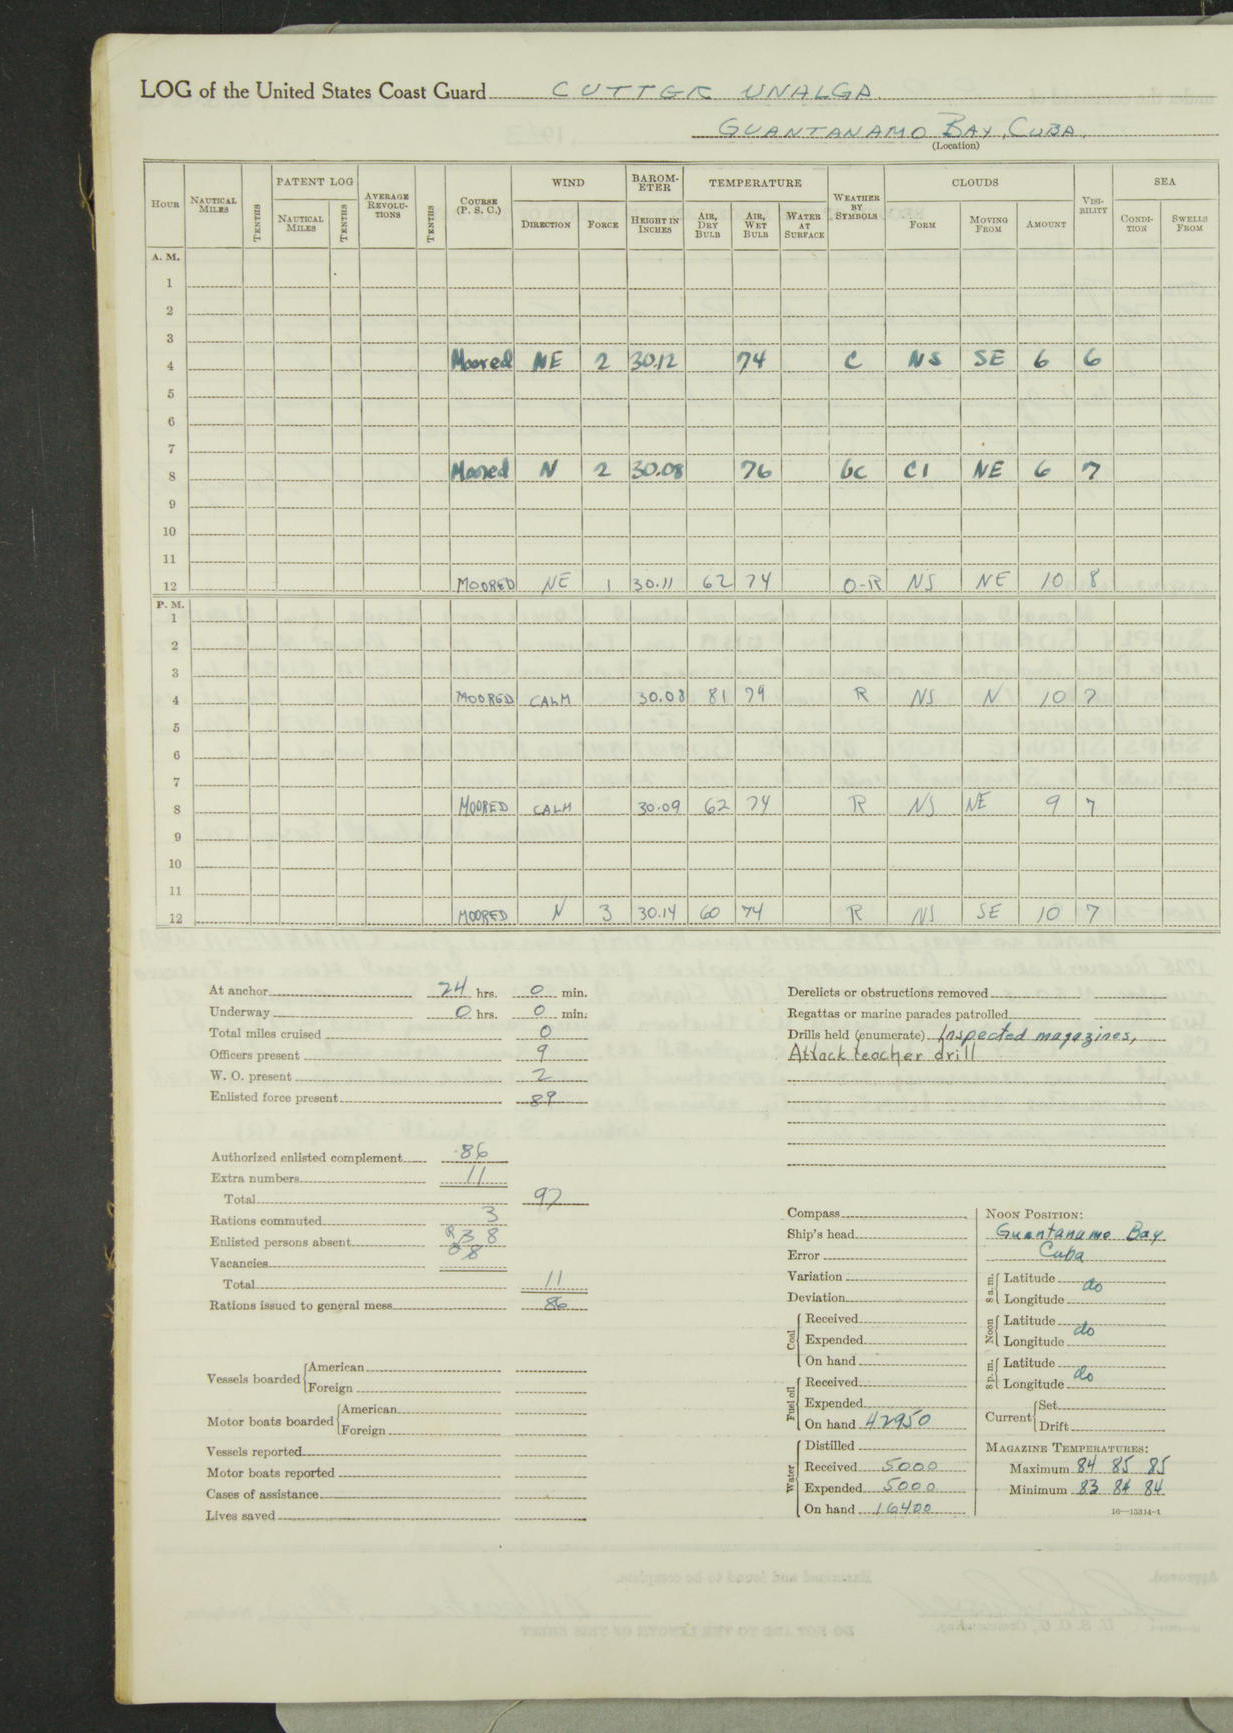 LOG of the United States Coast Guard CUTTER UNALGA
GUANTANAMO BAY, CUBA.
(Location)
HOUR NAUTICAL MILES TENTHS PATENT LOG NAUTICAL MILES TENTHS AVERAGE REVOLU-TIONS TENTHS COURSE (P. S. C.) WIND DIRECTION FORCE BAROM-ETER HEIGHT IN INCHES TEMPERATURE AIR, DRY BULB AIR, WET BULB WATER AT SURFACE WEATHER BY SYMBOLS CLOUDS FORM MOVING FROM AMOUNT VISI-BILITY SEA CONDI-TION SWELLS FROM
A. M.
1
2
3
4 Moored NE 2 30.12 74 C NS SE 6 6
5
6
7
8 Moored N 2 30.08 76 bc CI NE 6 7
9
10
11
12 MOORED NE 1 30.11 62 74 O-R NS NE 10 8
P. M.
1
2
3
4 MOORED CALM 30.08 81 79 R NS N 10 7
5
6
7
8 MOORED CALM 30.09 62 74 R NS NE 9 7
9
10
11
12 MOORED N 3 30.14 60 74 R NS SE 10 7
At anchor 24 hrs. 0 min.
Underway 0 hrs. 0 min.
Total miles cruised 0
Officers present 9
W. O. present 2
Enlisted force present 89
Authorized enlisted complement 86
Extra numbers 11
Total 97
Rations commuted 3
Enlisted persons absent 8
Vacancies
Total 11
Rations issued to general mess 86
Vessels boarded American
Foreign
Motor boats boarded American
Foreign
Vessels reported
Motor boats reported
Cases of assistance
Lives saved
Derelicts or obstructions removed
Regattas or marine parades patrolled
Drills held (enumerate) Inspected magazines,
Attack teacher drill
Compass
Ship's head
Error
Variation
Deviation
Coal Received
Expended
On hand
Fuel oil Received
Expended
On hand 42950
Water Distilled
Received 5000
Expended 5000
On hand 16400
NOON POSITION:
Guantanamo Bay
Cuba
8 a. m. Latitude
do
Longitude
Noon Latitude
do
Longitude
8 p. m. Latitude
do
Longitude
Current Set
Drift
MAGAZINE TEMPERATURES:
Maximum 84 85 85
Minimum 83 84 84
16—15314-1